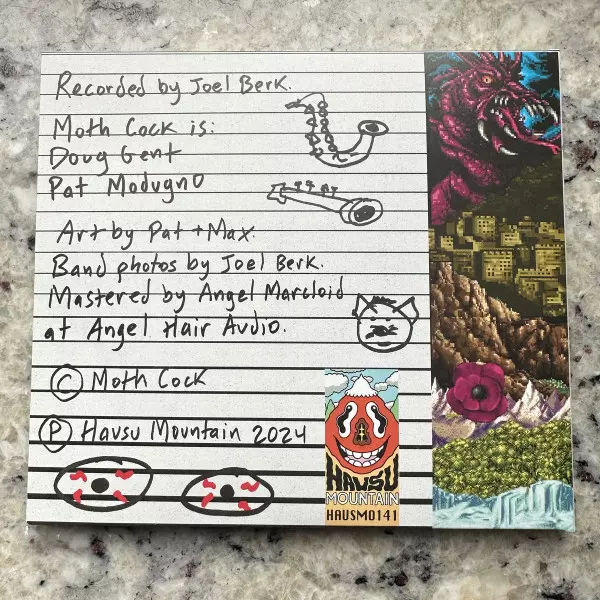 Recorded by Joel Berk.
Moth Cock is:
Doug Gent
Pat Modugno
Art by Pat + Max.
Band photos by Joel Berk.
Mastered by Angel Marcloid
at Angel Hair Audio.
© Moth Cock
Ⓟ Hausu Mountain 2024
HAUSU
MOUNTAIN
HAUSMO141